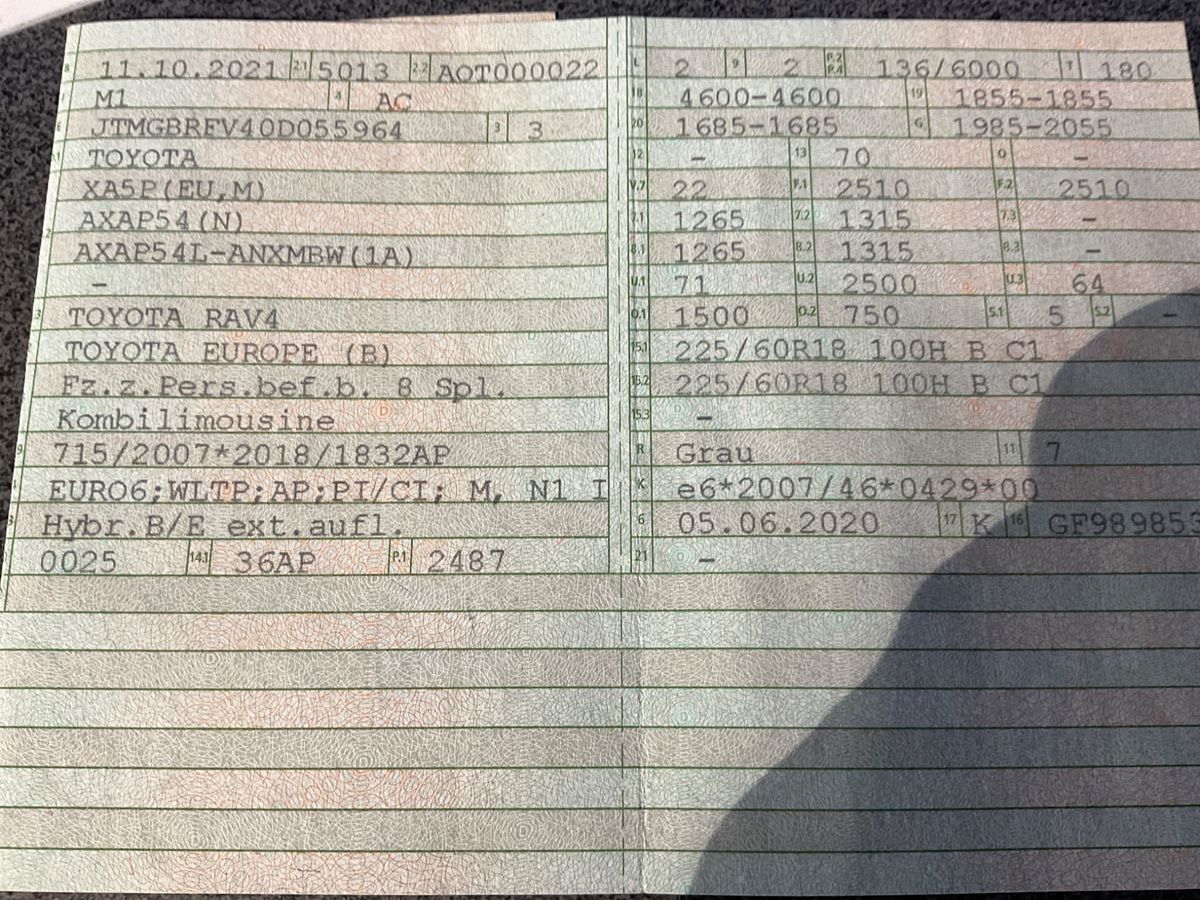 B 11.10.2021 2.1 5013 2.2 AOT000022
M1 4 AC
E JTMGBRFV40D055964 3 3
TOYOTA
XA5P(EU,M)
AXAP54(N)
AXAP54L-ANXMBW(1A)
–
TOYOTA RAV4
TOYOTA EUROPE (B)
Fz.z.Pers.bef.b. 8 Spl.
Kombilimousine
715/2007*2018/1832AP
EURO6;WLTP;AP;PI/CI; M, N1 I
Hybr.B/E ext.aufl.
0025 14.1 36AP P.1 2487
L 2 9 2 P.2 P.4 136/6000 T 180
18 4600-4600 19 1855-1855
20 1685-1685 G 1985-2055
12 – 13 70 Q –
V.7 22 F.1 2510 F.2 2510
7.1 1265 7.2 1315 7.3 –
8.1 1265 8.2 1315 8.3 –
U.1 71 U.2 2500 U.3 64
O.1 1500 O.2 750 S.1 5 S.2 –
15.1 225/60R18 100H B C1
15.2 225/60R18 100H B C1
15.3 –
R Grau 11 7
K e6*2007/46*0429*00
6 05.06.2020 17 K 16 GF98985
21 –